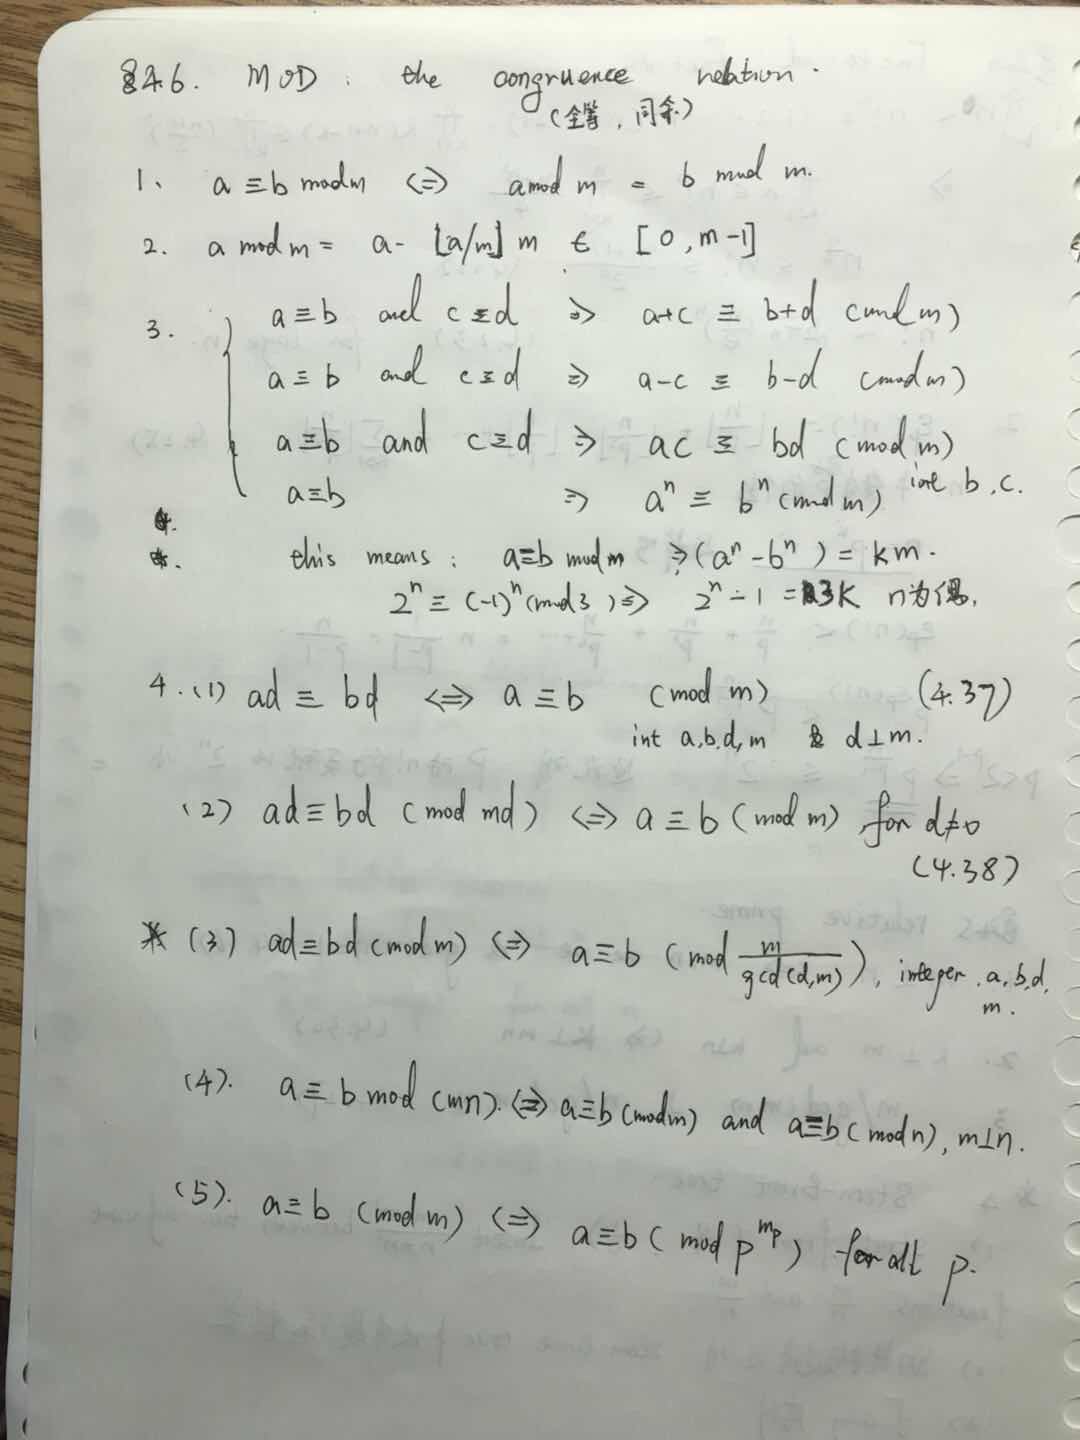 §4.6. MOD: the congruence relation.
(全等, 同余)
1、 a ≡ b mod m ⇔ a mod m = b mod m.
2. a mod m = a - ⌊a/m⌋ m ∈ [0, m-1]
3. a ≡ b and c ≡ d ⇒ a+c ≡ b+d (mod m)
a ≡ b and c ≡ d ⇒ a-c ≡ b-d (mod m)
a ≡ b and c ≡ d ⇒ ac ≡ bd (mod m)
a ≡ b ⇒ aⁿ ≡ bⁿ (mod m) int b, c.
this means: a ≡ b mod m ⇒ (aⁿ - bⁿ) = km.
2ⁿ ≡ (-1)ⁿ (mod 3) ⇒ 2ⁿ - 1 = 3k n为偶.
4. (1) ad ≡ bd ⇔ a ≡ b (mod m) (4.37)
int a,b,d,m & d⊥m.
(2) ad ≡ bd (mod md) ⇔ a ≡ b (mod m) for d≠0
(4.38)
* (3) ad ≡ bd (mod m) ⇔ a ≡ b (mod m/gcd(d,m)), integer a, b, d,
m.
(4). a ≡ b mod (mn). ⇔ a ≡ b (mod m) and a ≡ b (mod n), m⊥n.
(5). a ≡ b (mod m) ⇔ a ≡ b (mod p^{m_p}) for all p.